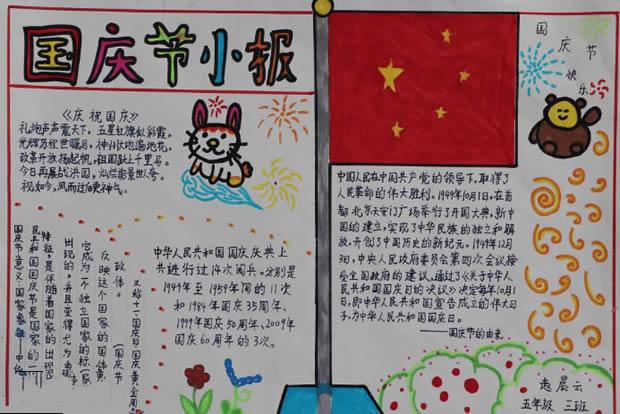 国庆节小报
《庆祝国庆》
礼炮声声震天下,五星红旗似彩霞。
光辉历程世瞩目,神州大地遍地花。
改革开放扬起帆,祖国跃上千里马。
今日再展战洪图,灿烂前景世人夸。
祝如今,风雨过后更神气。
中华人民共和国国庆庆典上
共进行过14次阅兵。分别是
1949年至1959年间的11次
和1984年国庆35周年、
1999年国庆50周年、2009年
国庆60周年的3次。
又称十一国庆日、国庆黄金周。
(国庆节
政体。
反映这个国家的国体
它成为一个独立国家的标
出现的,并且变得尤为重要
特征,是伴随着国家的出现
民共和国国庆节是国家的一
国庆节意义:国家象征
国庆节快乐
中国人民在中国共产党的领导下,取得了
人民革命的伟大胜利。1949年10月1日,在首
都北京天安门广场举行了开国大典,新中
国的建立,实现了中华民族的独立和解
放,开创了中国历史的新纪元。1949年12月
3日,中央人民政府委员会第四次会议接
受全国政府的建议,通过了《关于中华人
民共和国国庆日的决议》决定每年10月1
日,即中华人民共和国宣告成立的伟大日
子,为中华人民共和国国庆日。
——国庆节的由来
晨云
五年级 三班